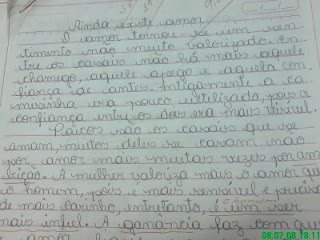 Ainda existe amor
O amor tornou-se um sen
timento não muito valorizado. En
tre os casais não há mais aquele
chamego, aquele apego e aquela con
fiança de antes. Antigamente a ca
misinha era pouco ultilizada, pois a
confiança entre os dois era mais visível.
Poucos são os casais que se
amam, muitos deles se casam não
por amor mais muitas vezes por am
bição. A mulher valoriza mais o amor que
o homem, pois é mais sensível e precisa
de mais carinho, entretanto, é um ser
mais infiel. A ganância faz com que
08.07.08 18:11